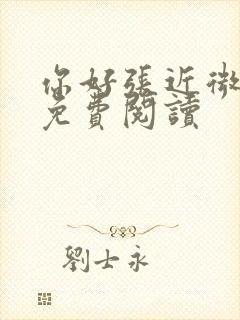 你好張近微
免費閱讀
劉士永